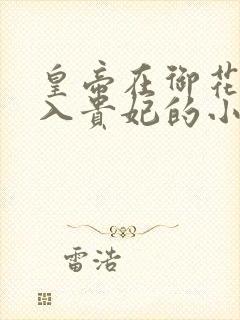 皇帝在御花
入贵妃的小
雷浩